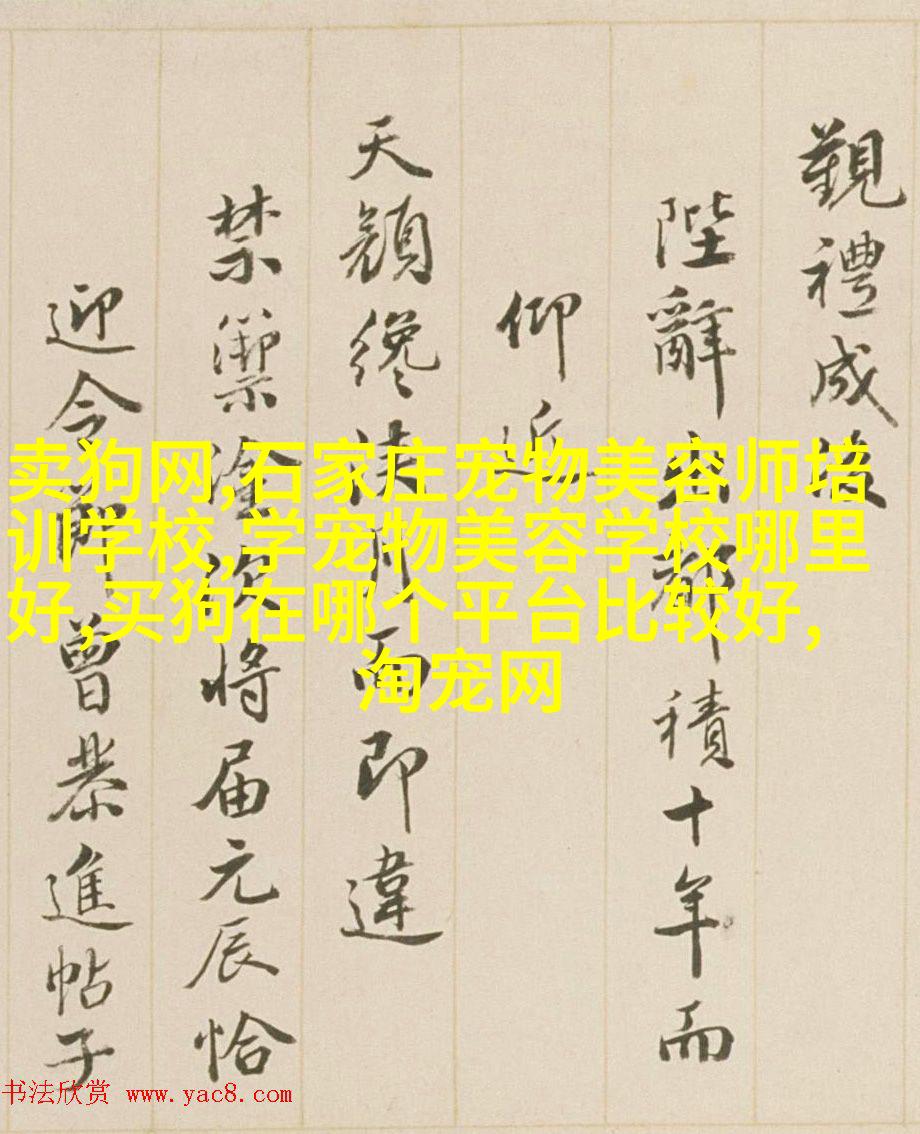 觀禮成後
陛辭出都積十年而
仰近
天顏纔浹月而即違
禁籞塗次將届元辰恰
迎令節曾恭進帖子
卖狗网,石家庄宠物美容师培
训学校,学宠物美容学校哪里
好,买狗在哪个平台比较好,
淘宠网
书法欣赏 www.yac8.com